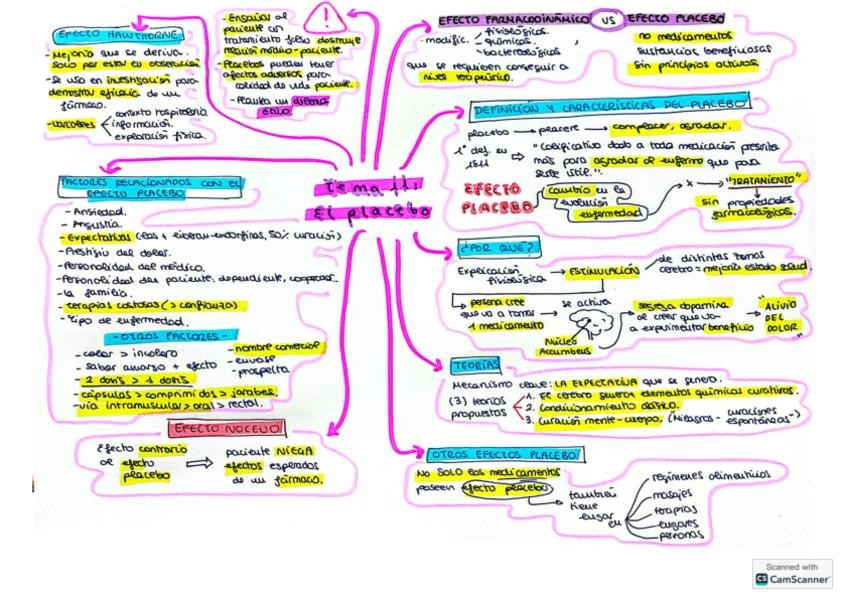 EFECTO HAWTHORNE
-Mejoría que se deriva
solo por estar en observación
-Se usa en investigación para
demostrar eficacia de un
fármaco.
-Variables
contexto hospitalario
información.
exploración física.
-Ensañar al
paciente un
tratamiento falso destruye
relación médico-paciente.
-Placebos pueden tener
efectos adversos para
calidad de vida paciente.
-Plantea un dilema
ético
EFECTO FARMACODINÁMICO VS EFECTO PLACEBO
-modific.
fisiológicas.
-químicas.
bacteriológicas
que se requieren conseguir a
nivel terapéutico.
no medicamentos
sustancias beneficiosas
sin principios activos.
DEFINICIÓN Y CARACTERÍSTICAS DEL PLACEBO
placebo → placere → complacer, agradar.
1ª def. en
1811
⇒ "calificativo dado a toda medicación prescrita
más para agradar al enfermo que para
serle útil."
EFECTO
PLACEBO
cambio en la
evolución
enfermedad
x → "TRATAMIENTO"
sin propiedades
farmacológicas.
FACTORES RELACIONADOS CON EL
EFECTO PLACEBO
-Ansiedad.
-Angustia.
-Expectativas (eas + liberan endorfinas, 50% curación)
-Prestigio del doctor.
-Personalidad del médico.
-Personalidad del paciente, dependiente, cooperador.
-la familia.
-terapias costosas (> confianza)
-Tipo de enfermedad.
-OTROS FACTORES-
-color > incoloro
-sabor amargo + efecto
-2 dosis > 1 dosis
-cápsulas > comprimidos > jarabes.
-vía intramuscular > oral > rectal.
-nombre comercial
-envase
-prospecto.
Tema 11:
El placebo
¿POR QUÉ?
Explicación
fisiológica
→ ESTIMULACIÓN
de distintas zonas
cerebro = mejoría estado salud.
persona cree
que va a tomar
1 medicamento
se activa
Núcleo
Accumbens
segrega dopamina
al creer que va
a experimentar beneficio
"ALIVIO
DEL
DOLOR"
TEORÍAS
Mecanismo clave: LA EXPECTATIVA que se genera.
(3) teorías
propuestas
1. El cerebro genera elementos químicos curativos.
2. Condicionamiento clásico.
3. Curación mente-cuerpo. (Milagros - curaciones
espontáneas-)
EFECTO NOCEVO
Efecto contrario
al efecto
placebo
⇒ paciente NIEGA
efectos esperados
de un fármaco.
OTROS EFECTOS PLACEBO
No SOLO los medicamentos
poseen efecto placebo
también
tiene
lugar
en
regímenes alimenticios
masajes
terapias
lugares
personas
Scanned with
CS CamScanner